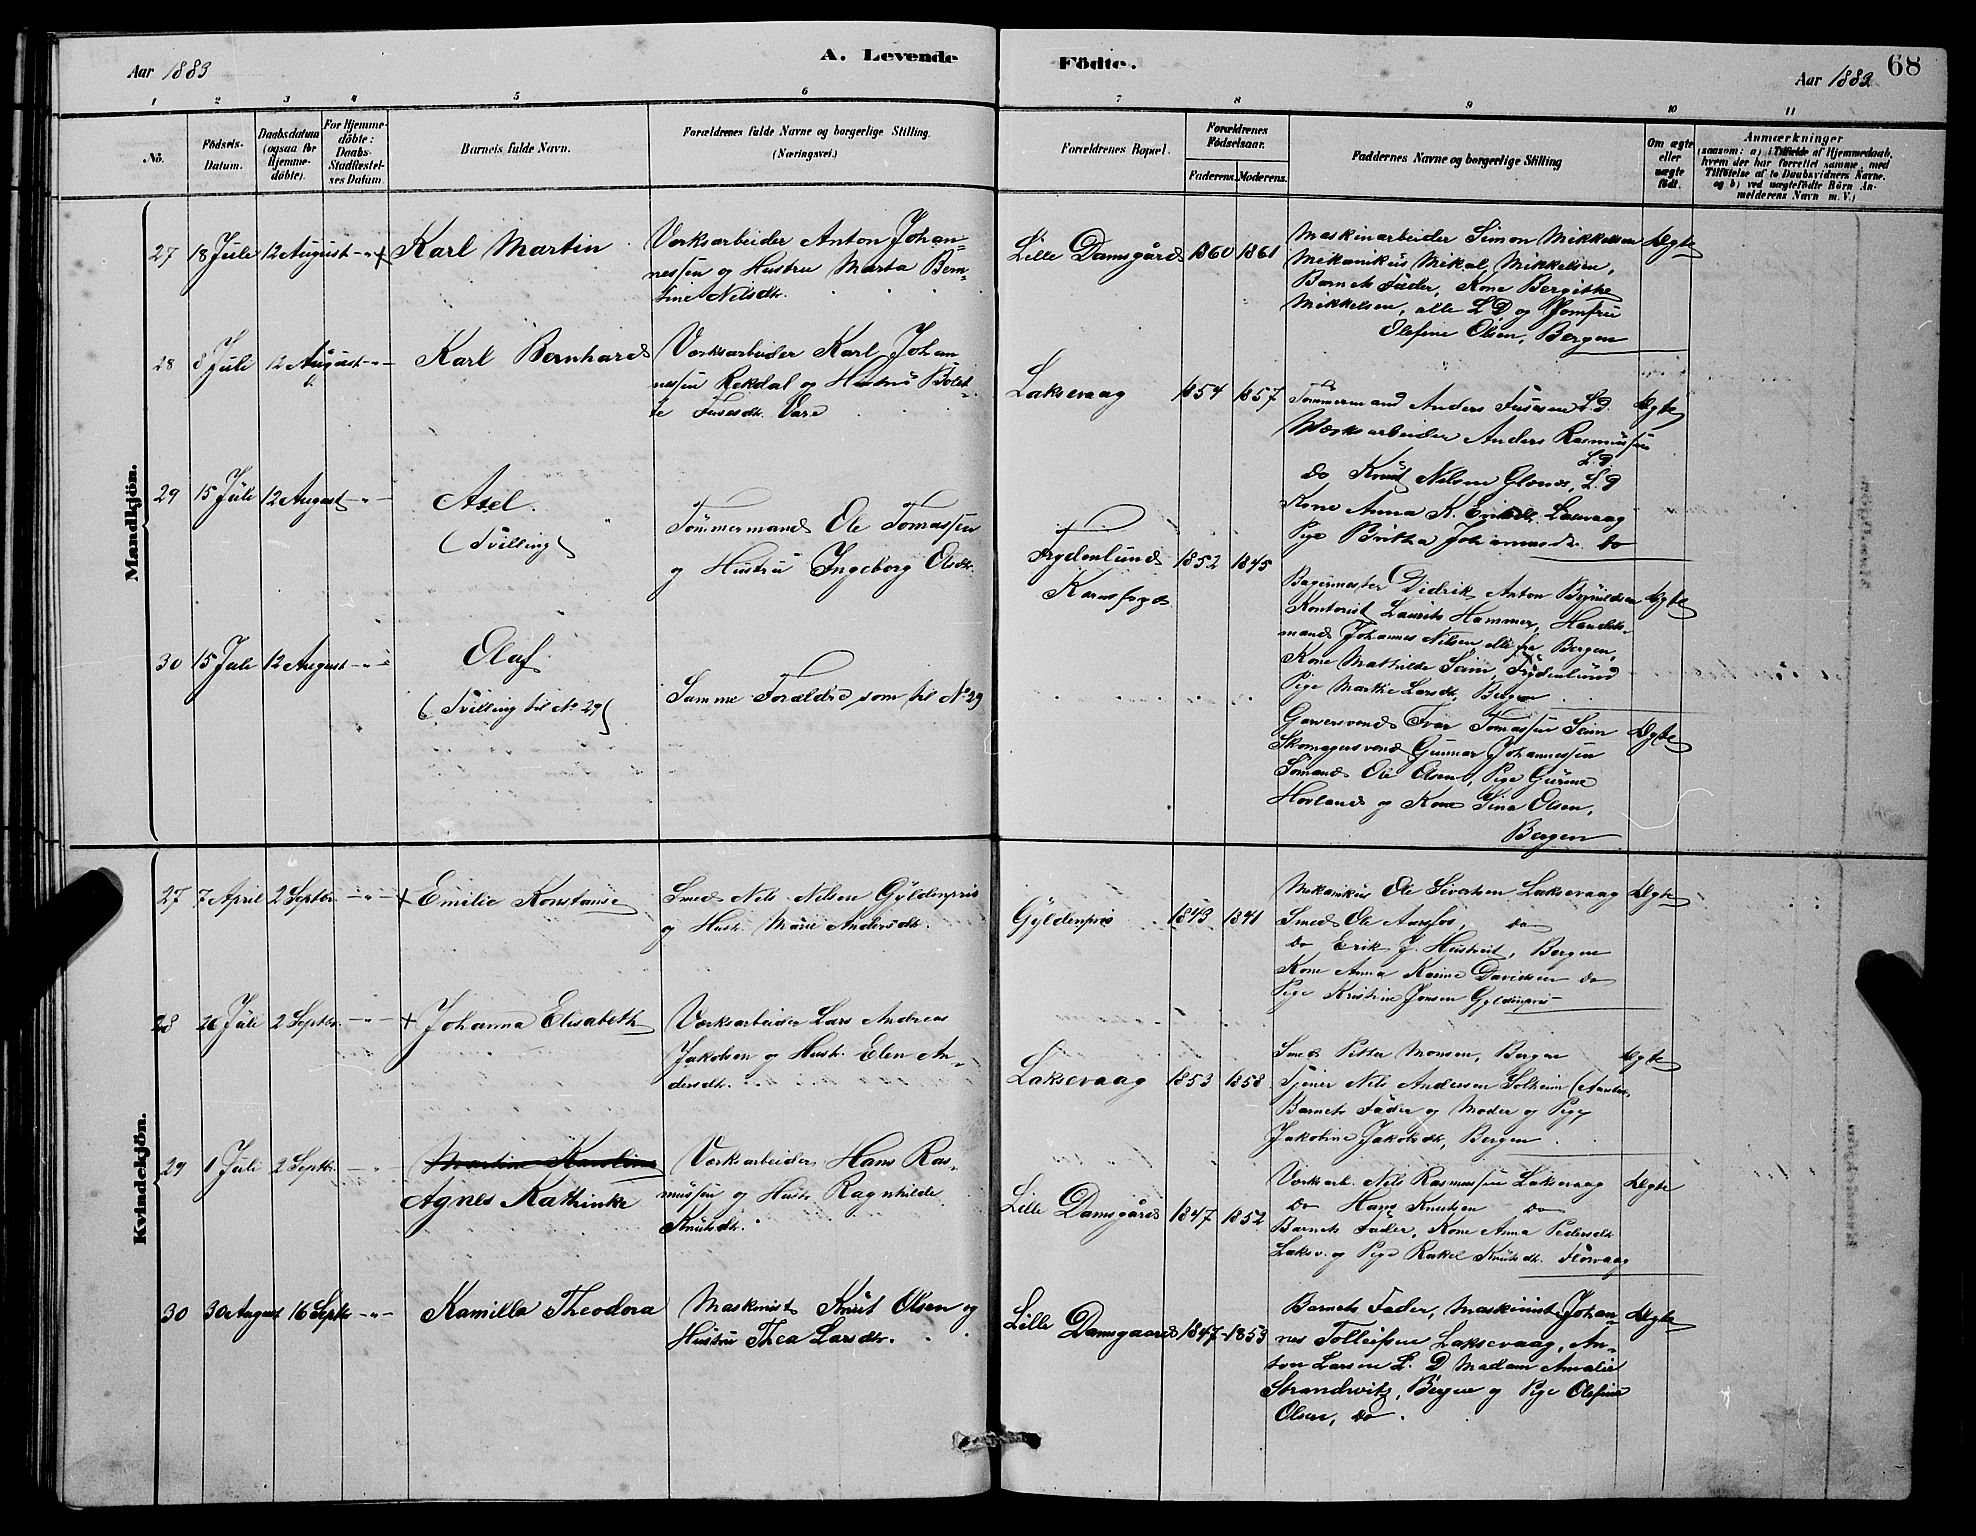 Aar 1883
A. Levende
Födte.
Aar 1883
68
1 2 3 4 5 6 7 8 9 10 11
No.
Födsels-
Datum.
Daabsdatum
(ogsaa for
Hjemme-
döbte).
For Hjemme-
döbte:
Daabs-
Stadfæstel-
ses Datum.
Barnets fulde Navn.
Forældrenes fulde Navne og borgerlige Stilling.
(Næringsvei.)
Forældrenes Bopæl.
Forældrenes
Födselsaar.
Faderens. Moderens.
Faddernes Navne og borgerlige Stilling
Om ægte
eller
uægte
födt.
Anmærkninger
(saasom: a) i Tilfælde af Hjemmedaab,
hvem der har forrettet samme, med
Tilföielse af to Daabsvidners Navne.
og b) ved uægtefödte Börn An-
melderens Navn m. V.)
Mandkjön.
27 18 Juli 12 August -"- + Karl Martin
Værksarbeider Anton Johan-
nessen og Hustru Marta Bern-
tine Nilsdtr.
Lille Damsgård 1860 1861
Maskinarbeider Simon Mikkelsen
Mekanikus Mikal Mikkelsen,
Barnets Fader, Kone Bergitte
Mikkelsen, alle L D og Jomfru
Olefine Olsen, Bergen
Ægte
28 8 Juli 12 August -"- Karl Bernhard
Værksarbeider Karl Johan-
nessen Rekdal og Hustru Bolet-
te Fusesdtr. Vare
Laksevaag 1854 1857
Tømmermand Anders Fusesen L D.
Værksarbeider Anders Rasmussen
L. D
do Knut Nilsen L. D
Kone Anna K. Laxevaag
Pige Britha Johannesdtr. do
Ægte
29 15 Juli 12 August -"- Axel.
(Tvilling)
Tømmermand Ole Tomassen
og Hustru Ingeborg Olsdtr.
Frydenlund
1852 1845
Bagermester Didrik Anton
Kontorist Laurits Hammer, Handels-
mand Johannes Nilsen alle fra Bergen,
Kone Mathilde Seim, Frydenlund
Pige Marthe Larsdtr, Bergen
Ægte
30 15 Juli 12 August -"- Olaf
(Tvilling til No 29)
Samme Forældre som til No 29
Garversvend Ivar Tomassen Seim
Skomagersvend Gunnar Johannessen
Sømand Ole Olsen, Pige Gurine
Hovland og Kone Sina Olsen,
Bergen
Ægte
Kvindekjön.
27 7 April 2 Septbr. -"- + Emilie Konstanse
Smed Nels Nilsen Gyldenpris
og Hustr. Marie Andersdtr.
Gyldenpris 1843 1841
Mekanikus Ole Sivertsen Laksevaag
Smed Ole do
do Erik J. Bergen
Kone Anna Karine Davidsen do
Pige Kristine Jonsen Gyldenpris
Ægte
28 26 Juli 2 Septbr. -"- + Johanna Elisabeth
Værksarbeider Lars Andreas
Jakobsen og Hustr. Elen An-
dersdtr.
Laksevaag 1853 1858
Smed Petter Monsen, Bergen
Tjener Nils Andersen Solheim
Barnets Fader og Moder og Pige
Jakobine Jakobsdtr, Bergen
Ægte
29 1 Juli 2 Septbr. -"- Martine Karoline
Agnes Kathinka
Værksarbeider Hans Ras-
mussen og Hustr. Ragnhilde
Knutsdtr.
Lille Damsgård 1847 1852
Værkarb. Nils Rasmussen Laksevaag
do Hans Knutsen do
Barnets Fader, Kone Anna Pedersdtr
Laksv. og Pige Rakel Knutsdtr. Florvaag
Ægte
30 30 August 16 Septbr -"- Kamilla Theodora
Maskinist Knut Olsen og
Hustru Thea Larsdtr.
Lille Damsgaard 1847 - 1853
Barnets Fader, Maskinist Johan-
nes Tolleifsen Laksevaag, An-
ton Larsen L. D Madam Amalie
Strandvitz, Bergen og Pige Olefine
Olsen, do.
Ægte